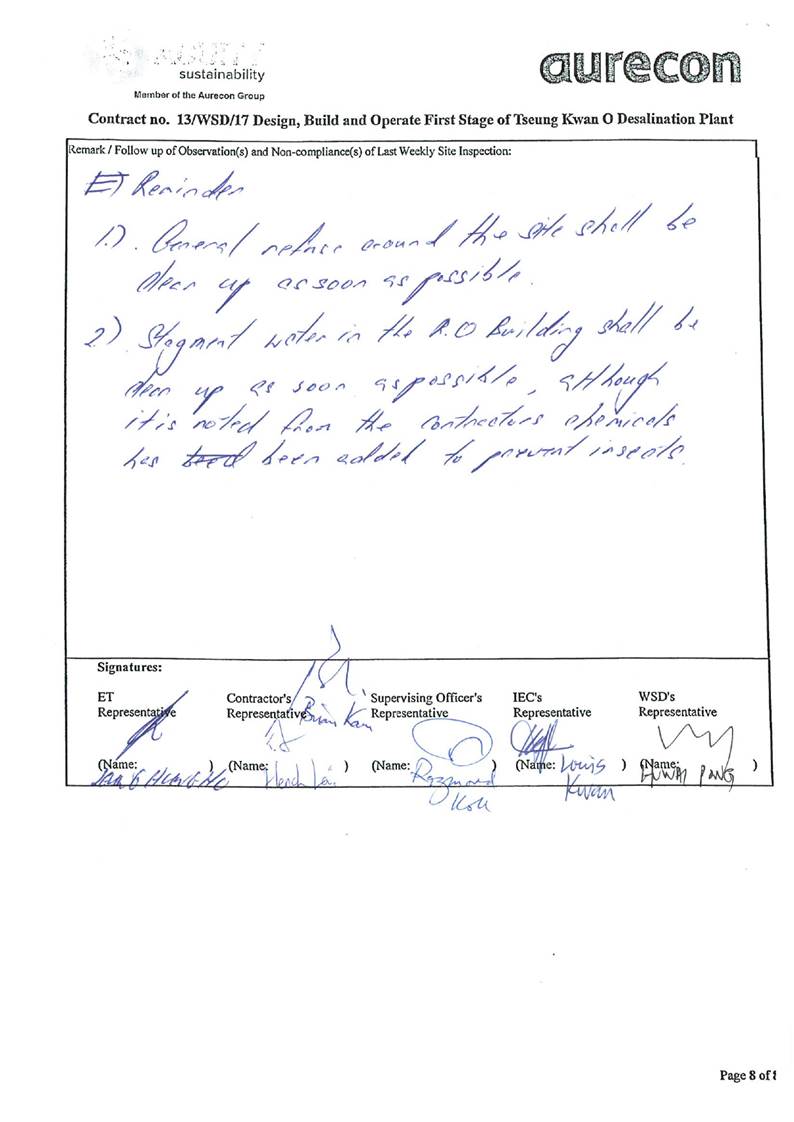 sustainability
Member of the Aurecon Group
aurecon
Contract no. 13/WSD/17 Design, Build and Operate First Stage of Tseung Kwan O Desalination Plant
Remark / Follow up of Observation(s) and Non-compliance(s) of Last Weekly Site Inspection:
Reminder
1.). General refuse around the site shall be
clean up as soon as possible.
2.) Stagment water in the R.O Building shall be
clean up as soon as possible, although
it is noted from the contractors chemicals
has been added to prevent insects.
Signatures:
ET Representative
Contractor's Representative
Brian Kam
Supervising Officer's Representative
IEC's Representative
WSD's Representative
(Name: )
(Name: )
(Name: Raymond Koh )
(Name: Louis Kwan )
(Name: PANG )
Page 8 of